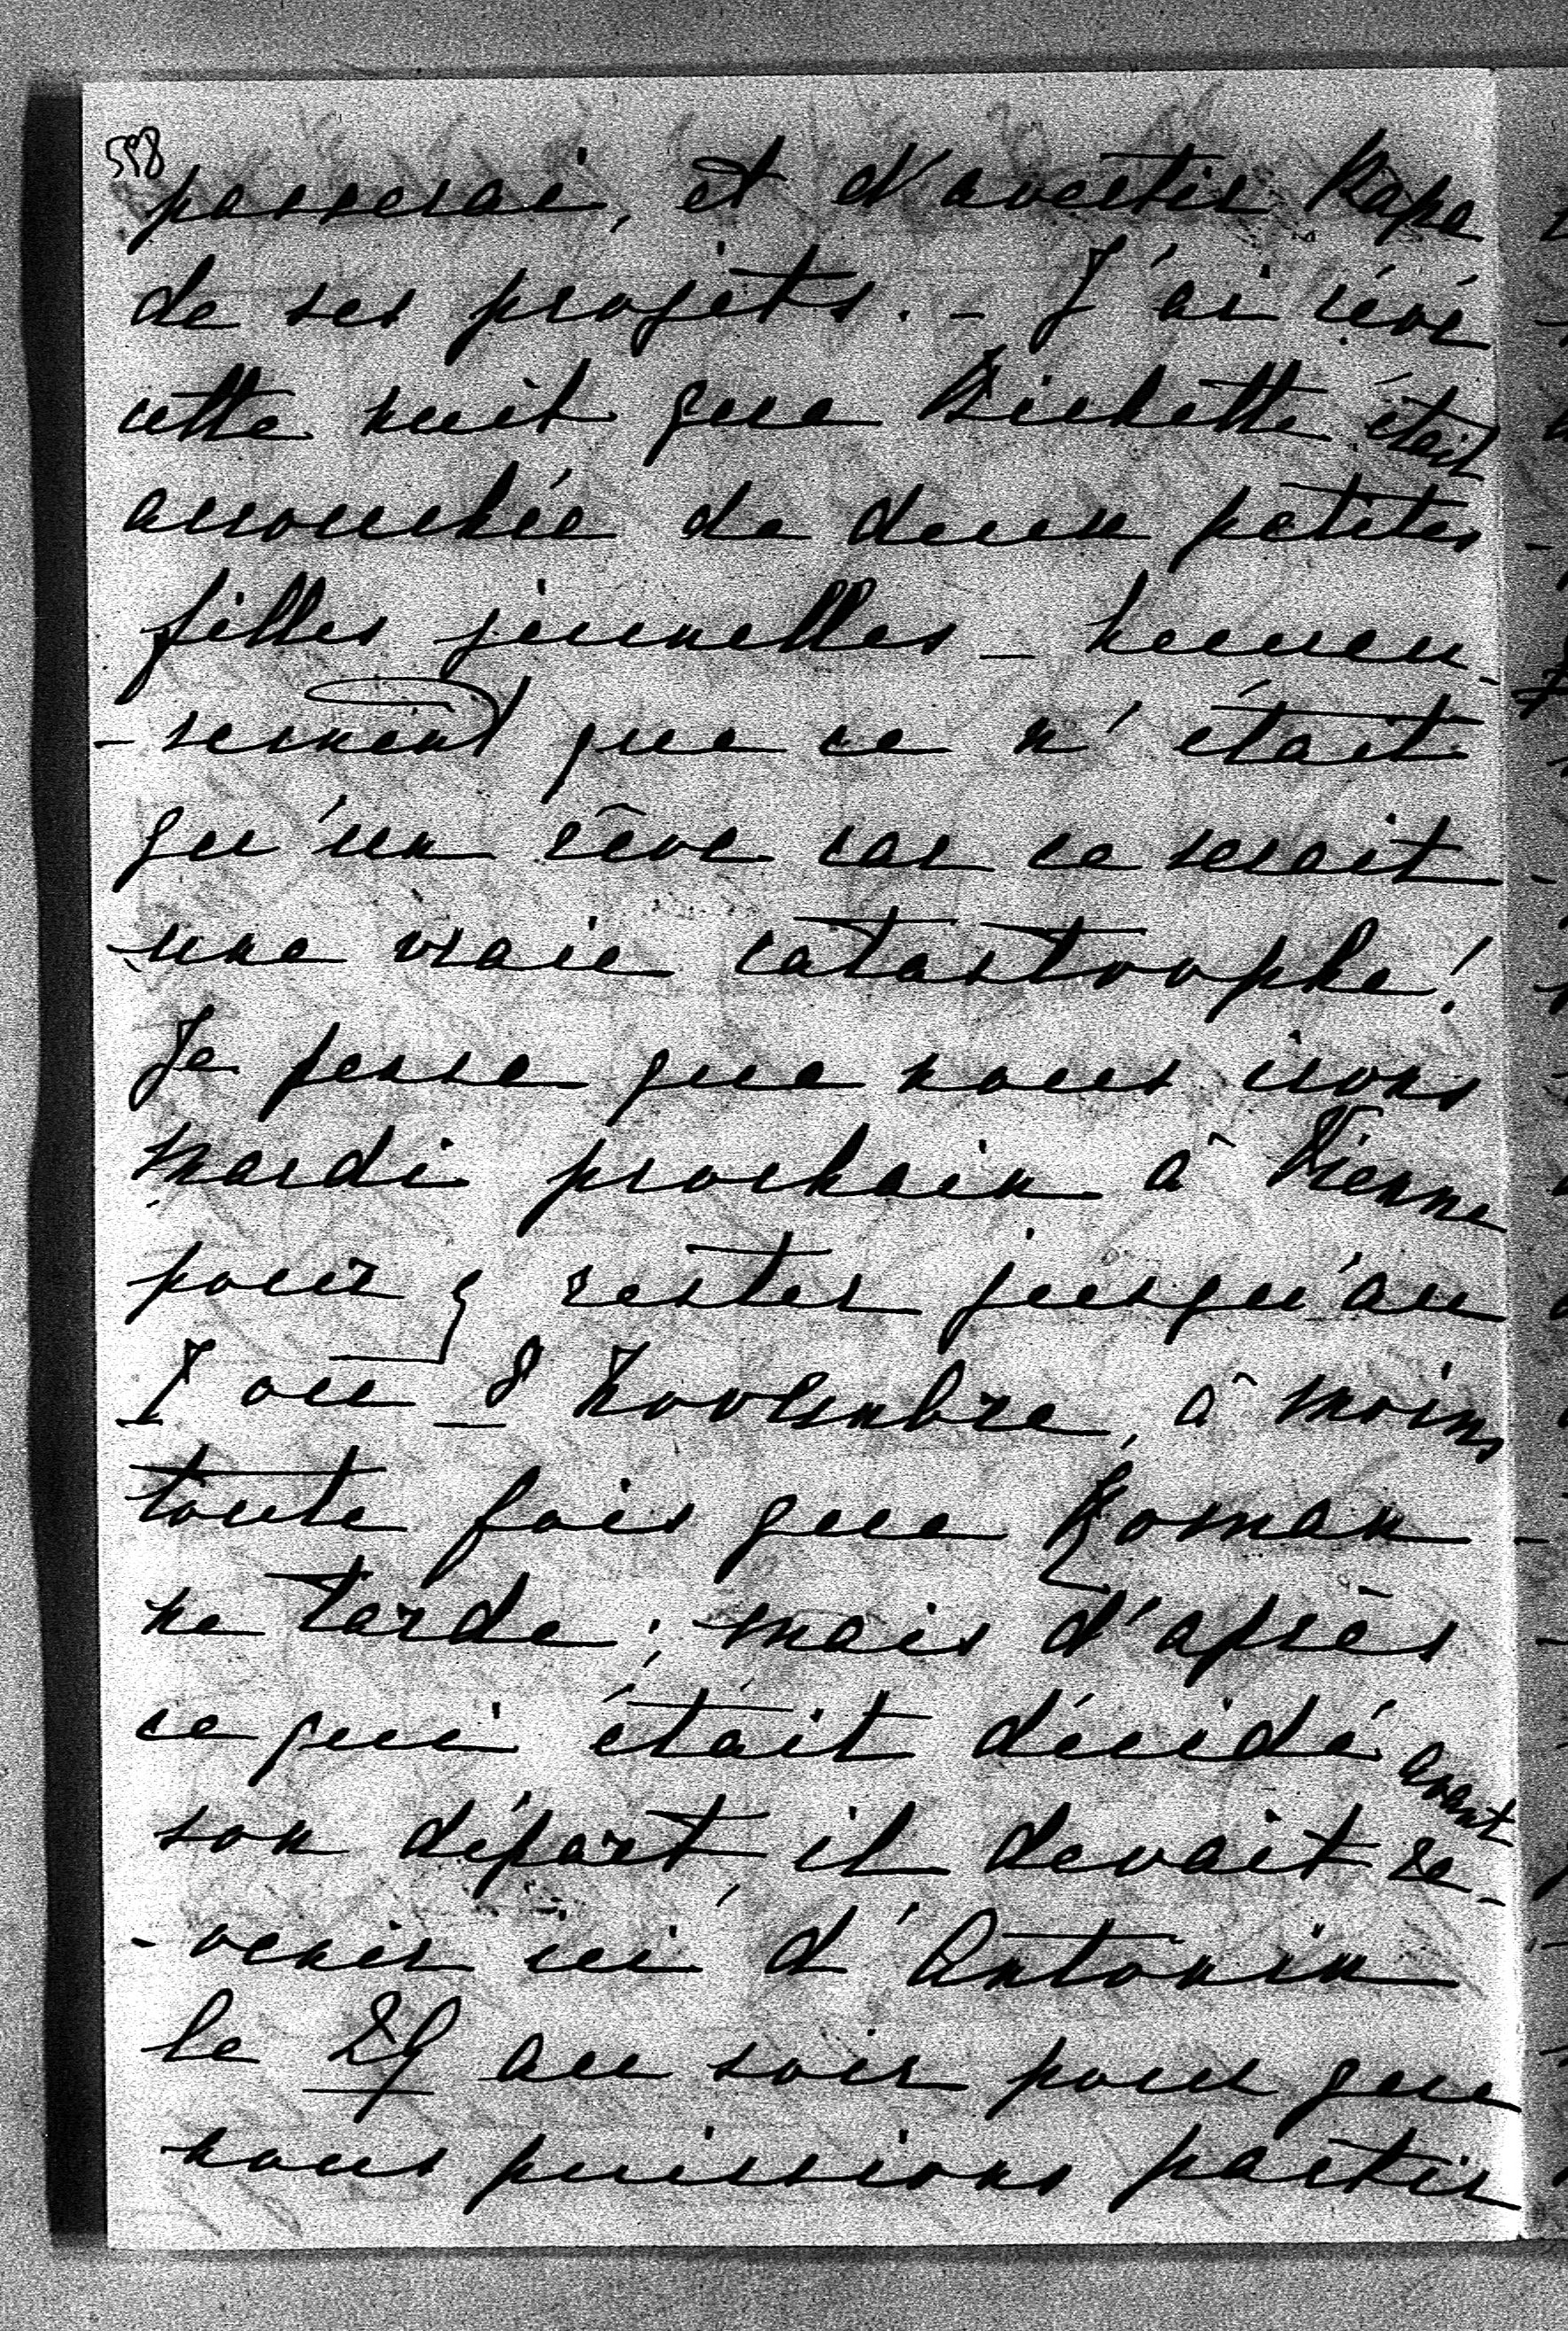 598
passerai, et d'avertir Papa
de ses projets. - J'ai rêvé
cette nuit que Bichette était
accouchée de deux petites
filles jumelles - heureu-
-sement que ce n'était
qu'un rêve car ce serait
une vraie catastrophe!
Je pense que nous irons
mardi prochain à Vienne
pour y rester jusqu'au
7 ou 8 Novembre, à moins
toute fois que Roman
ne tarde; mais d'après
ce qui était décidé avant
son départ, il devait re-
-venir ici d'Antonin
le 29 au soir pour que
nous puissions partir